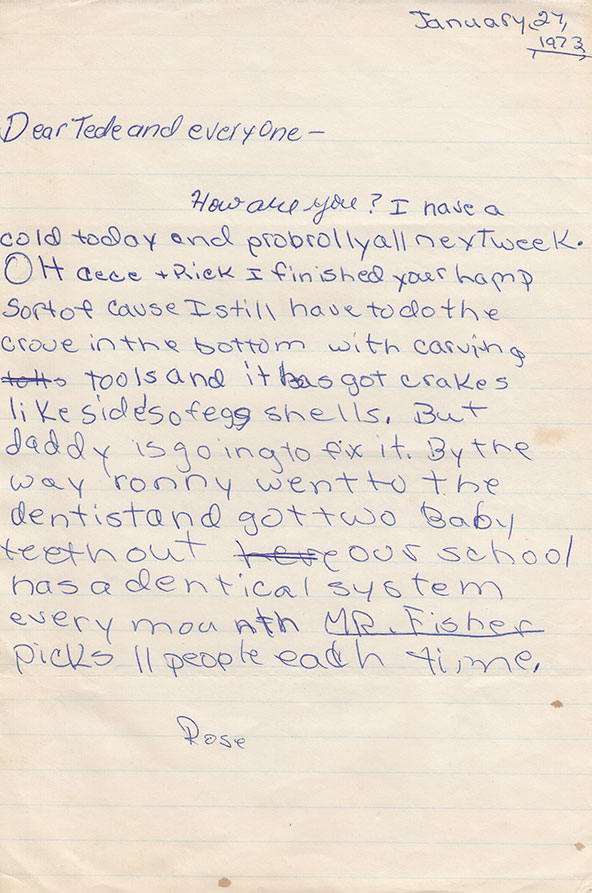 January, 27,
1973
Dear Tede and everyone –
How are you? I have a
cold today and probrolly all next week.
OH cece + Rick I finished your hamp
Sort of cause I still have to do the
crove in the bottom with carving
tools and it has got crakes
like sides of egg shells. But
daddy is going to fix it. By the
way ronny went to the
dentist and got two Baby
teeth out our school
has a dentical system
every mounth MR. Fisher
picks 11 people each time.
Rose